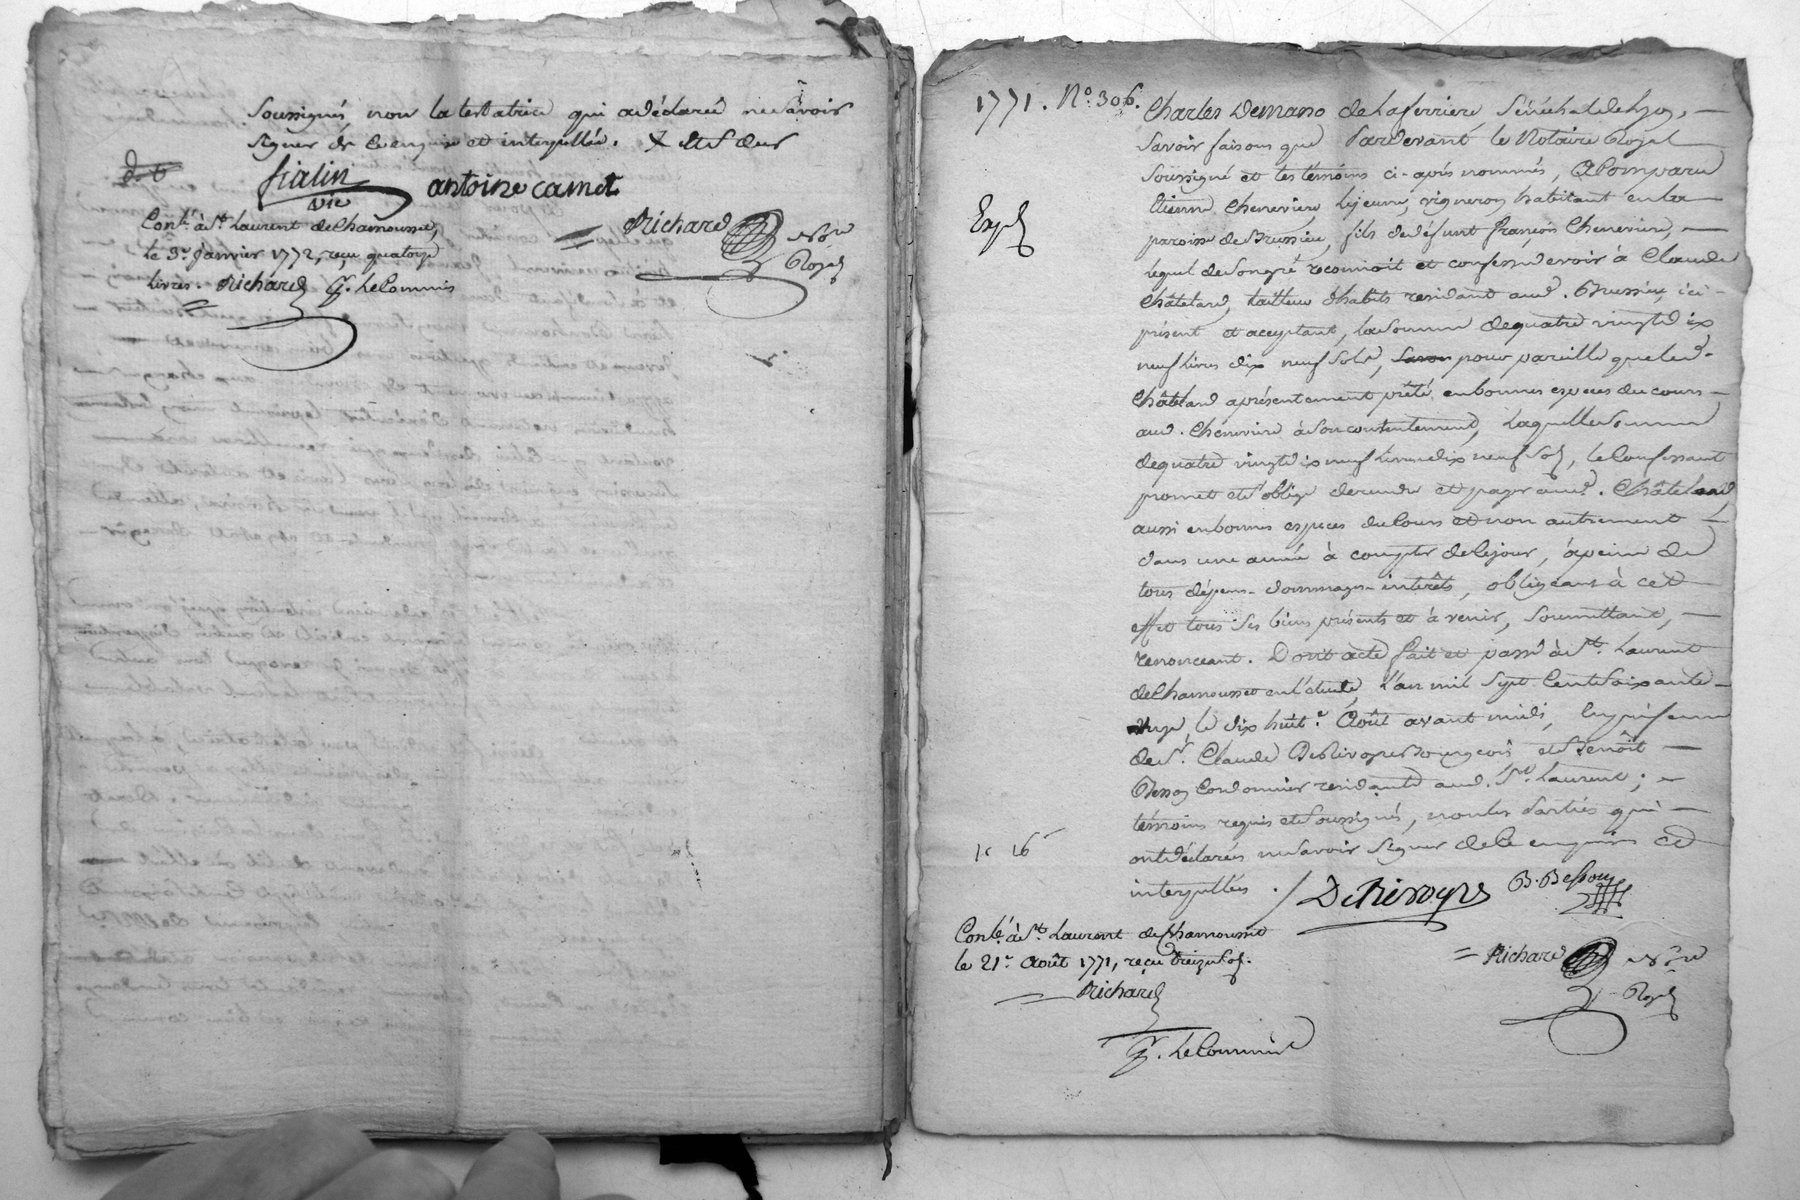 soussignés, non la testatrice qui a déclaré ne savoir
signer de ce enquise et interpellée.
fialin
vic
antoine camet
Richard
Con.lé à S.t Laurent de Chamousset,
le 3.e Janvier 1772, reçu quatorze
livres. Richard
P.r le Commis
No.re
Royal
1771. N.o 306.
Exp.é
Charles Demasso de Laferriere Sénéchal de Lyon,
Savoir faisons que Pardevant le Notaire Royal
Soussigné et les témoins ci-après nommés, a Comparu
Etienne Chenevier, le jeune, vigneron habitant en la
paroisse de Brussieu, fils de défunt françois Chenevier,
lequel de son gré reconnoit et confesse devoir à Claude
Châtelard, tailleur d'habits residant aud. Brussieu, ici
présent et acceptant, la somme de quatre vingt dix
neuf livres dix neuf sols, pour pareille que led.
Châtelard a présentement prêté en bonnes especes du cours
aud. Chenevier à son contentement, Laquelle somme
de quatre vingt dix neuf livres dix neuf sols, le Confessant
promet et s'oblige de rendre et payer aud. Châtelard
aussi en bonnes especes du Cours et non autrement
dans une année à compter de Ce jour, à peine de
tous dépens dommages intérêts, obligeant à cet
effet tous ses biens présents et à venir, soumettant,
renonceant. Dont acte fait et passé à S.t Laurent
de Chamousset en l'étude, l'an mil sept Cent soixante
onze, le dix huit.e Août avant midi, En présence
de S.r Claude Derivoyre Bourgeois et Benoît
Besson Cordonnier residants aud. S.t Laurent;
témoins requis et soussignés, non les Parties qui
ont déclarés ne savoir signer de Ce enquises et
interpellées.
Derivoyre
B. Besson
Con.lé à S.t Laurent de Chamousset
le 21.e Août 1771, reçu treize sols.
Richard
P.r le Commis
Richard
No.re
Royal